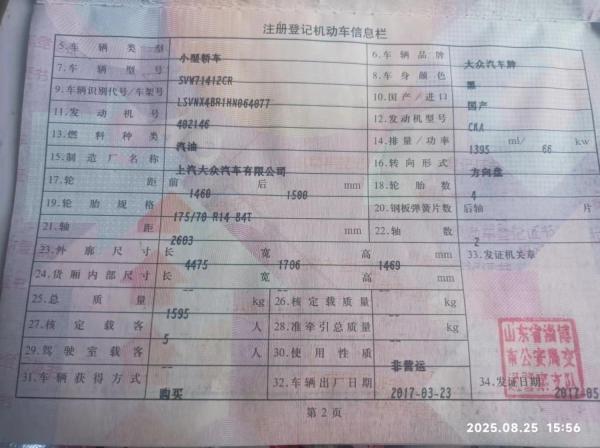 注册登记机动车信息栏
5.车辆类型 小型轿车 6.车辆品牌 大众汽车牌
7.车辆型号 SVW71412CR 8.车身颜色 黑
9.车辆识别代号/车架号 LSVNX4BR1HN064077 10.国产/进口 国产
11.发动机号 402146 12.发动机型号 CKA
13.燃料种类 汽油 14.排量/功率 1395 ml/ 66 kw
15.制造厂名称 上汽大众汽车有限公司 16.转向形式 方向盘
17.轮距 前 1460 后 1500 mm 18.轮胎数 4
19.轮胎规格 175/70 R14 84T 20.钢板弹簧片数 后轴 片
21.轴距 2603 mm 22.轴数 2
23.外廓尺寸 长 4475 宽 1706 高 1469 mm 33.发证机关章
24.货厢内部尺寸 长 -- 宽 -- 高 -- mm
25.总质量 1595 kg 26.核定载质量 -- kg
27.核定载客 5 人 28.准牵引总质量 -- kg
29.驾驶室载客 -- 人 30.使用性质 非营运
31.车辆获得方式 购买 32.车辆出厂日期 2017-03-23 34.发证日期 2017-05
第2页
2025.08.25 15:56